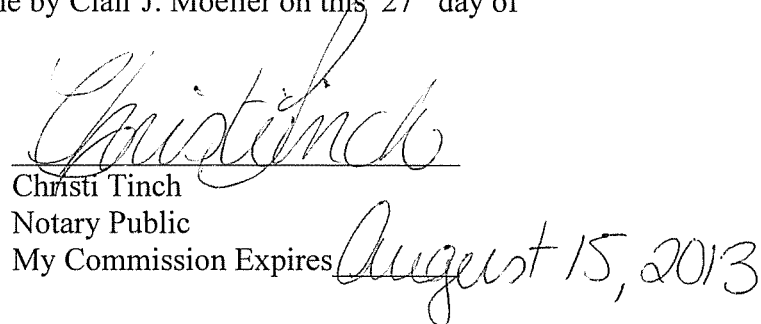 me by Clair J. Moeller on this 27th day of
Christi Tinch
Christi Tinch
Notary Public
My Commission Expires August 15, 2013